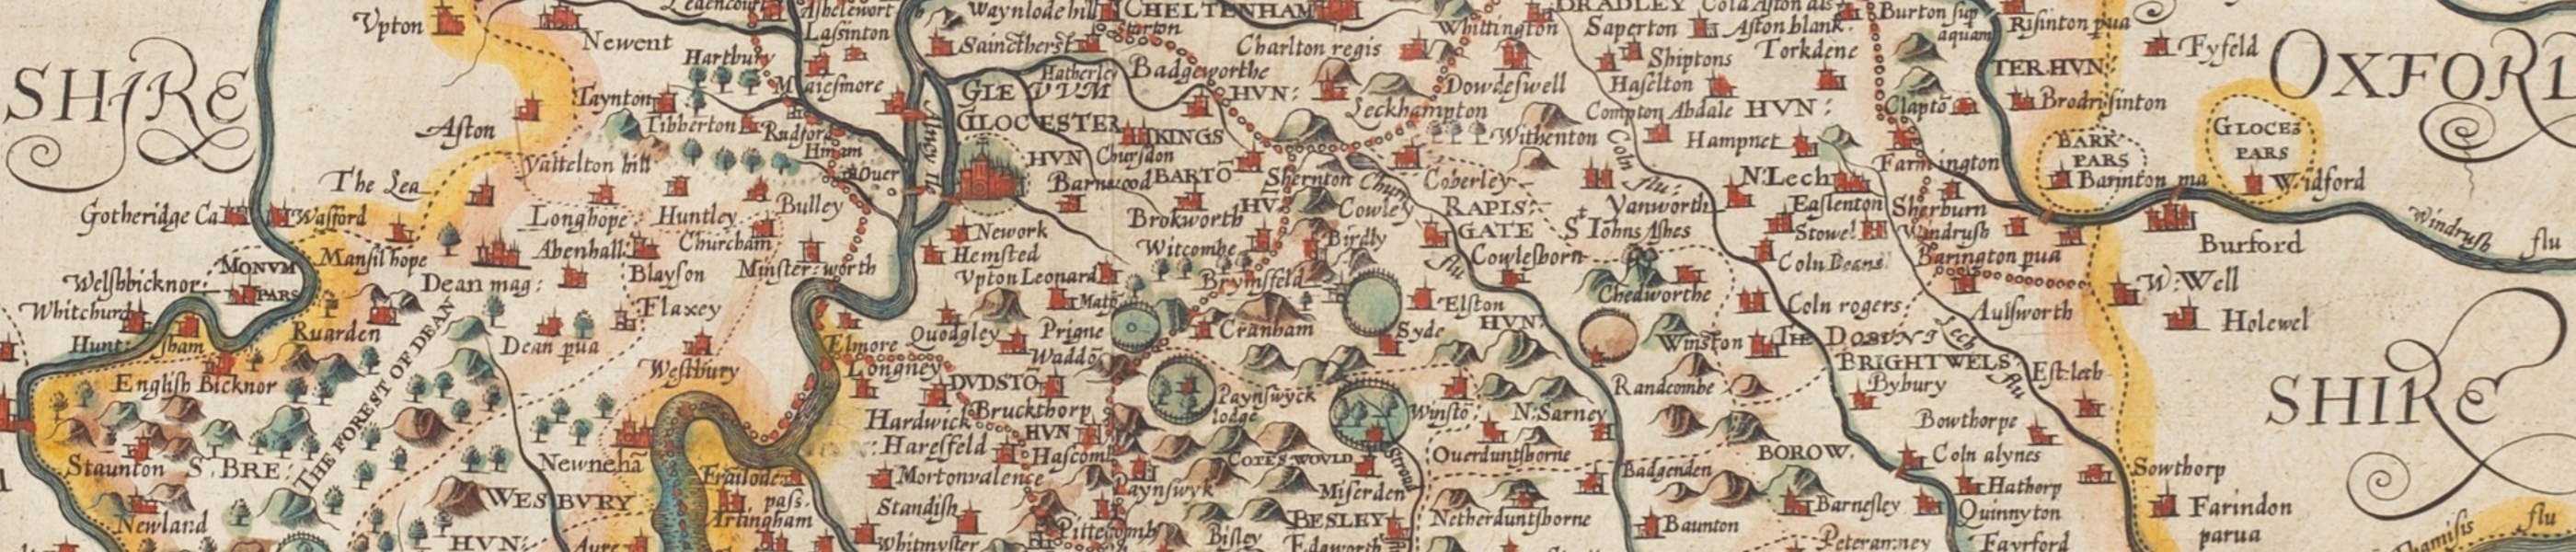 Vpton
Newent
Ashelewort
Lassinton
Waynlode hill
CHELTENHAM
Whittington
BRADLEY
Saperton
Aston blank
Burton sup
aquam
Risinton pua
Fyfeld
OXFORD
SHIRE
Hartbury
Sainctherst
Charlton regis
Shiptons
Torkdene
TER.HVN:
Hatherley
Badgeworthe
Dowdeswell
Haselton
Taynton
Maiesmore
GLEVVM
HVN:
Leckhampton
Compton Abdale
HVN:
Clapto
Brodrisinton
Aston
Tibberton
Rudford
GLOCESTER
KINGS
Withenton
Hampnet
GLOCES
PARS
BARK
PARS
Yattelton hill
HVN
Chursdon
Farmington
The Lea
Ouer
Barnwood
BARTO
Shernton
Churn
Coberley
Coln
flu:
N.Lech
Barinton ma
Widford
Gotheridge Ca
Walford
Longhope
Huntley
Bulley
Brokworth
HV
Cowley
RAPIS
GATE
Yanworth
Easlenton
Sherburn
Windrush
flu
Nework
Witcombe
Birdly
St Iohns Ashes
Stowel
Windrush
Burford
MONVM
PARS
Mansil hope
Abenhall
Churcham
Hemsted
flu
Cowlesborn
Coln Deans
Barington pua
Welshbicknor
Dean mag:
Blayson
Minsterworth
Vpton Leonard
Brymsfeld
Chedworthe
W:Well
Whitchurch
Flaxey
Matso
Elston
Coln rogers
Aulsworth
Ruarden
Elmore
Quodgley
Prigne
Cranham
Syde
HVN:
Holewel
Hunt:sham
Dean pua
Waddo
Winston
THE DOBVNI
Lech
flu
English Bicknor
THE FOREST OF DEAN
Westbury
Longney
DVDSTO
Paynswyck
lodge
Randcombe
BRIGHTWELS
Est:lech
SHIRE
Bybury
Hardwick
Bruckthorp
HVN
Winsto
N:Sarney
Bowthorpe
Haresfeld
Hascomb
COTES WOVLD
Ouerduntsborne
BOROW.
Coln alynes
Staunton
St. BRE:
Newneha
Frailode
pass.
Mortonvalence
Paynswyk
Miserden
Strowd
Badgenden
Hathorp
Sowthorp
Newland
WESBVRY
Artingham
Standish
Pittecomb
Bisley
BESLEY
Netherduntsborne
Baunton
Barnesley
Quinnyton
Farindon
parua
HVN:
Aure
Whitmyster
Edgworth
Fayrford
Thamisis
flu